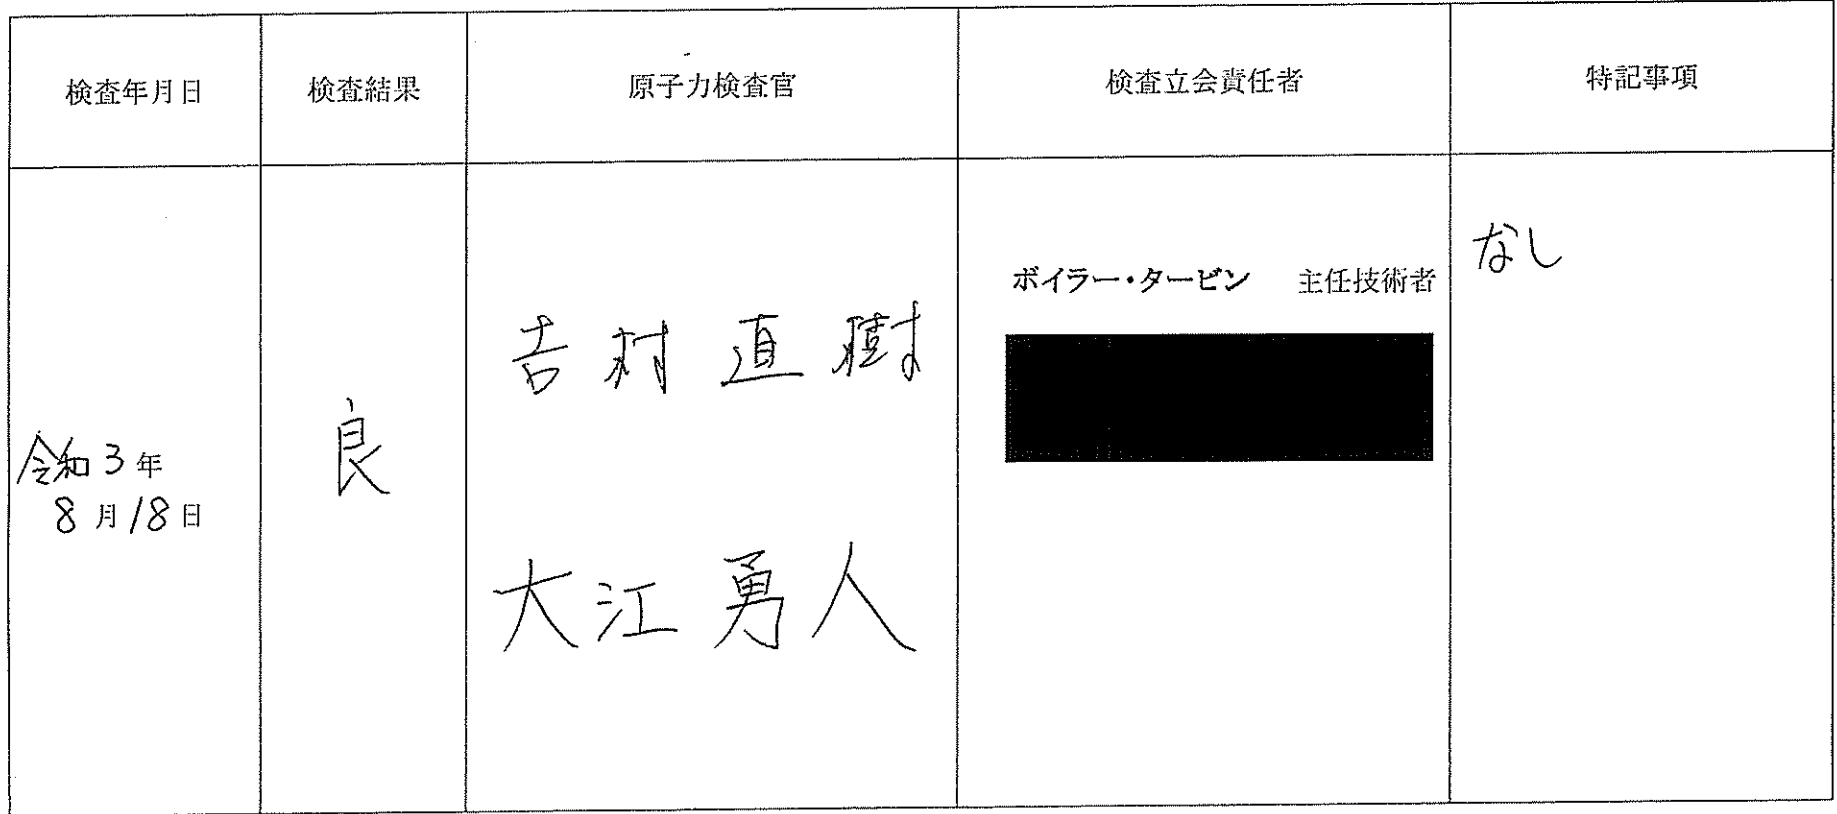 検査年月日
検査結果
原子力検査官
検査立会責任者
特記事項
令和3年
8月18日
良
吉村 直樹
大江 勇人
ボイラー・タービン 主任技術者
なし